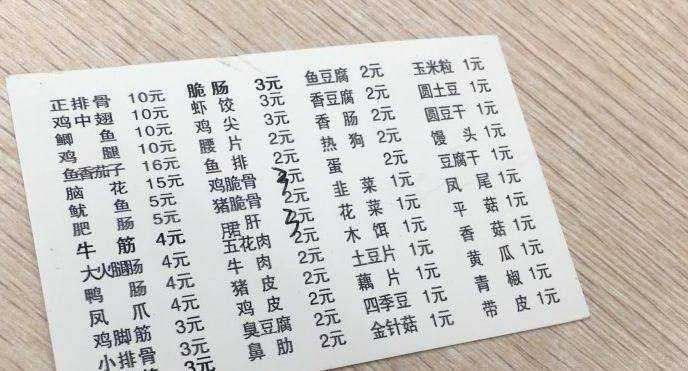 正排骨 10元
鸡中翅 10元
鲫鱼 10元
鸡腿 10元
鱼香茄子 16元
脑花 15元
鱿鱼 5元
肥肠 5元
牛筋 4元
大火腿肠 4元
鸭肠 4元
凤爪 4元
鸡脚筋 3元
小排骨 3元
3元
脆肠 3元
虾饺 3元
鸡尖 3元
腰片 2元
鱼排 2元
鸡脆骨 3元
猪脆骨 2元
肝 3元
五花肉 2元
牛肉 2元
猪皮 2元
鸡皮 2元
臭豆腐 2元
鼻肋 2元
鱼豆腐 2元
香豆腐 2元
香肠 2元
热狗 2元
蛋 2元
韭菜 1元
花菜 1元
木饵 1元
土豆片 1元
藕片 1元
四季豆 1元
金针菇 1元
玉米粒 1元
圆土豆 1元
圆豆干 1元
馒头 1元
豆腐干 1元
凤尾 1元
平菇 1元
香菇 1元
黄瓜 1元
青椒 1元
带皮 1元